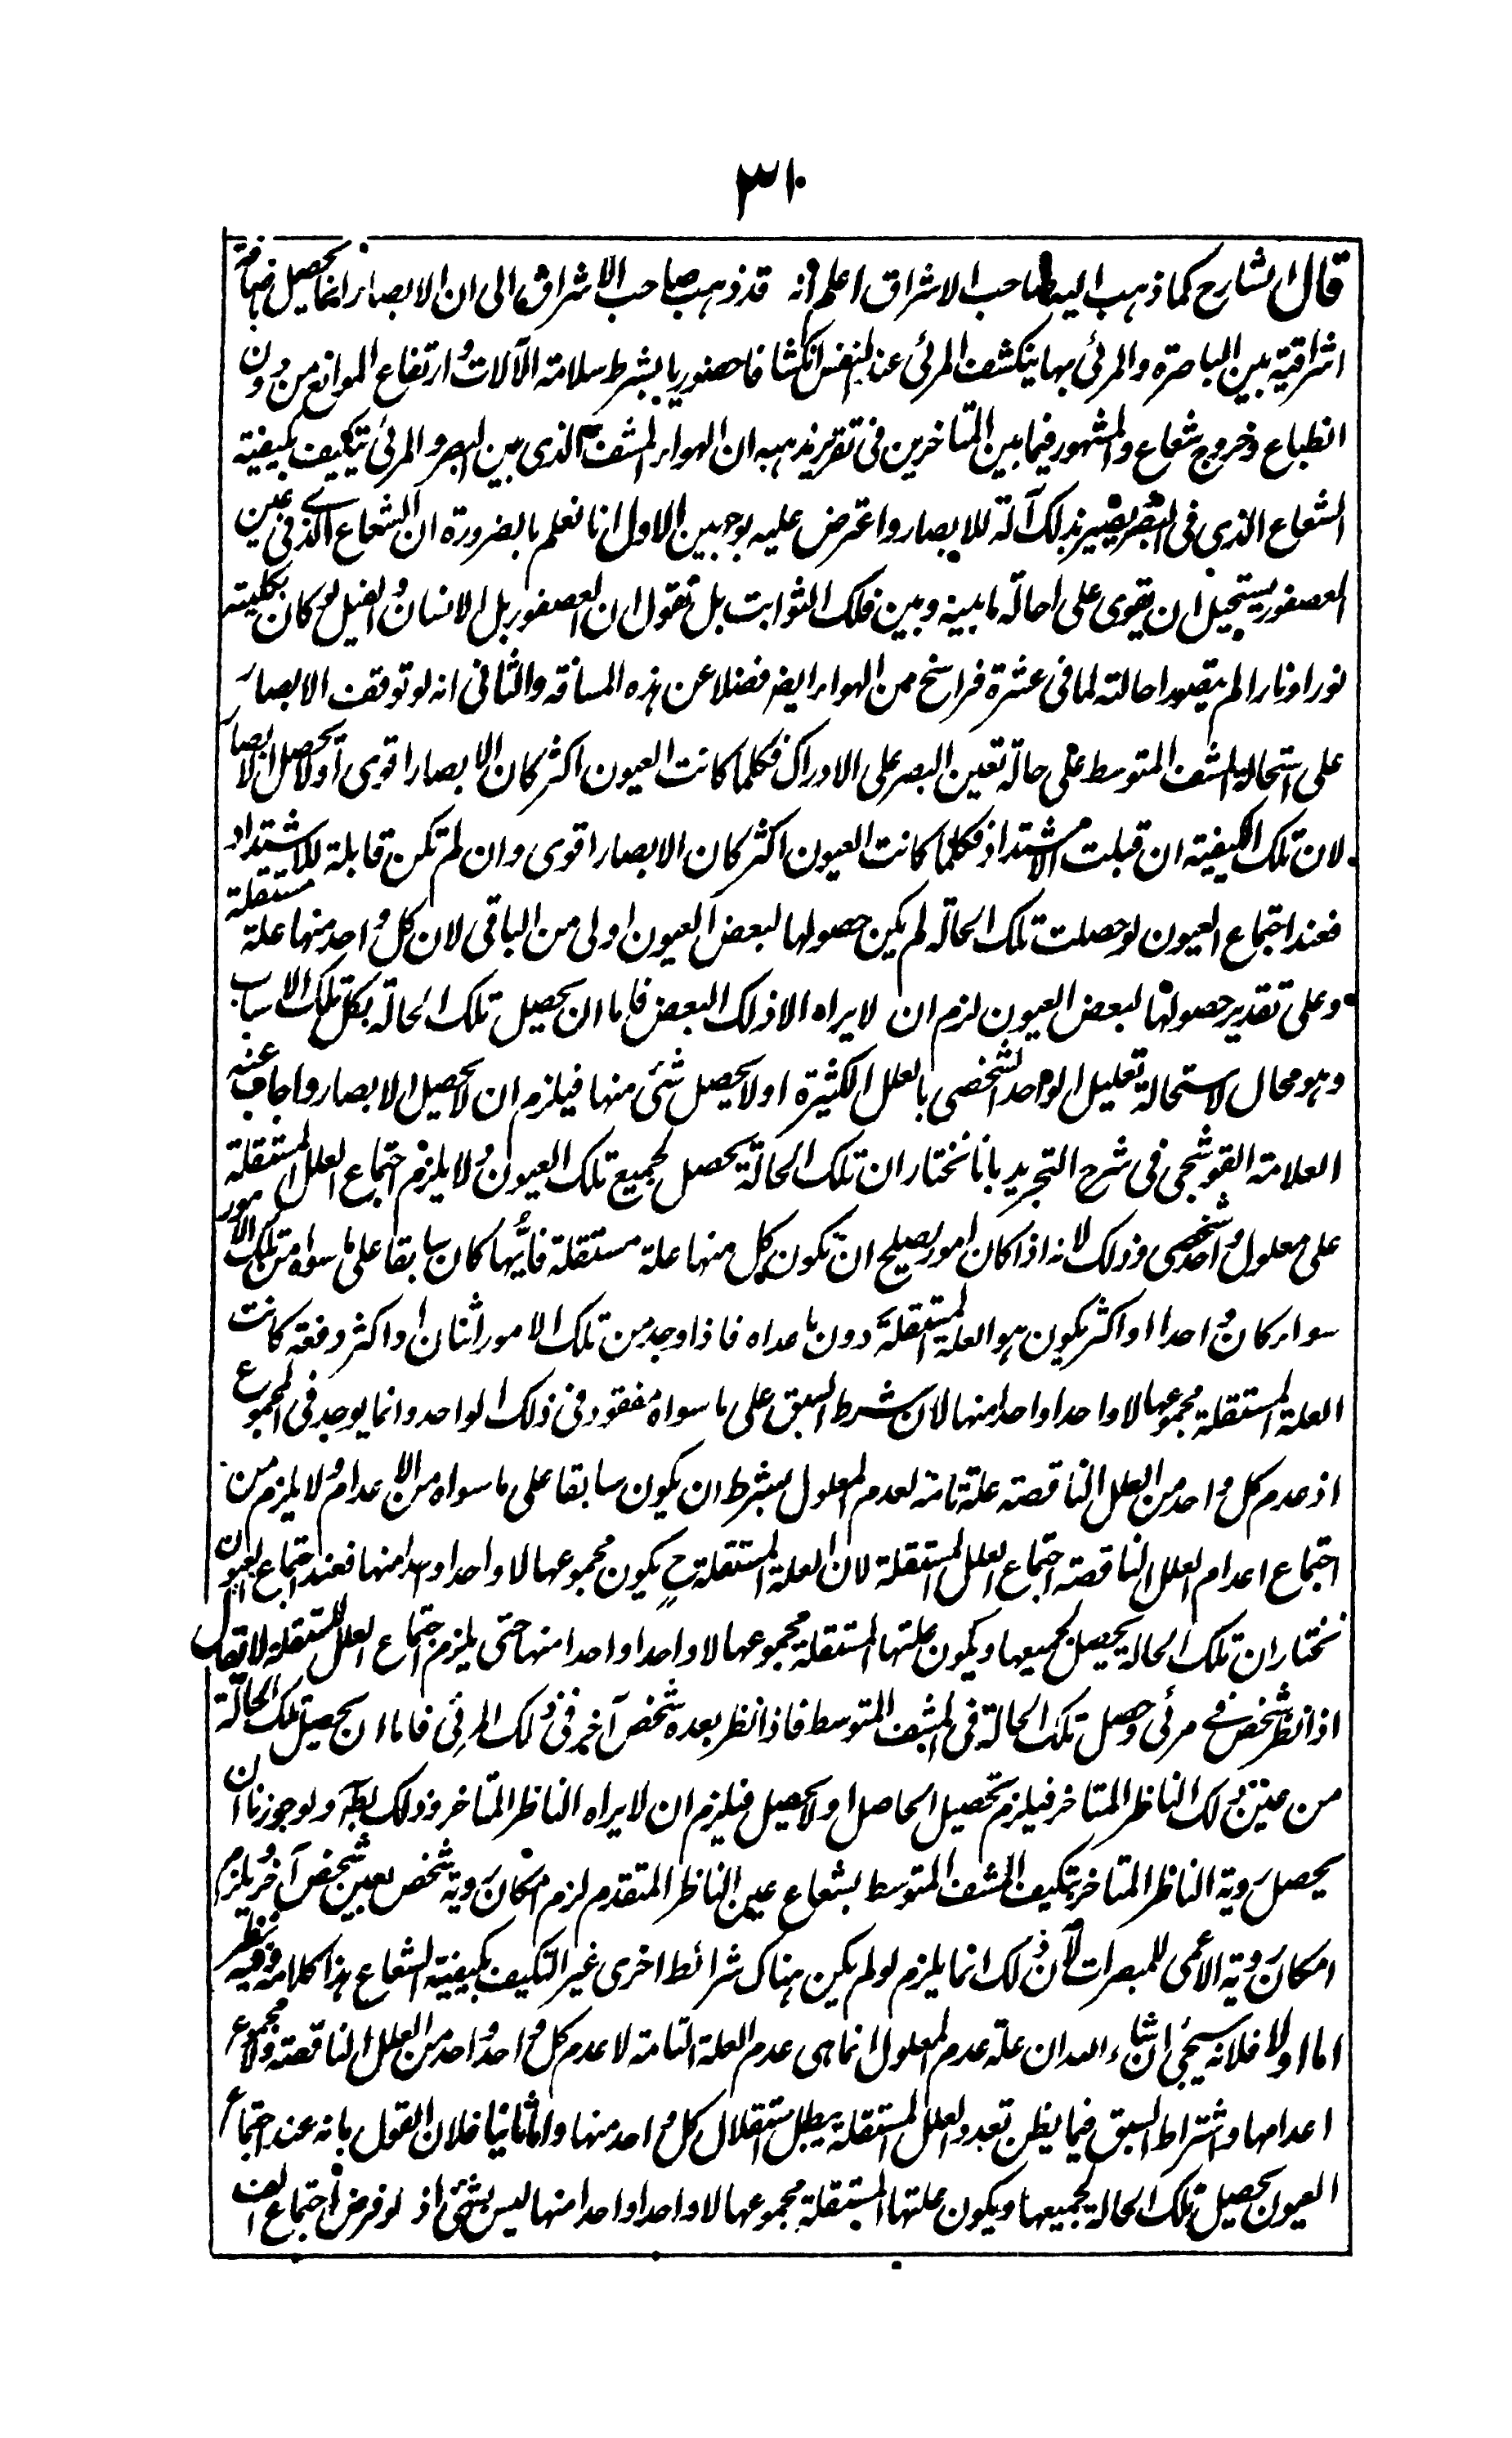 ٣١٠
قال الشارح كما ذهب اليه صاحب الاشراق اعلم انه قد ذهب صاحب الاشراق الى ان الابصار انما يحصل باضافة
اشراقية بين الباصرة والمرئى بها ينكشف المرئى عند النفس انكشافا حضوريا بشرط سلامة الآلات وارتفاع الموانع من دون
انطباع وخروج شعاع والمشهور فيما بين المتاخرين فى تقرير مذهبه ان الهواء المشف الذى بين البصر والمرئى يتكيف بكيفية
الشعاع الذى فى البصر يصير بذلك آلة للابصار واعترض عليه بوجهين الاول انا نعلم بالضرورة ان الشعاع الذى فى عين
العصفور يستحيل ان يقوى على احالة ما بينه وبين فلك الثوابت بل نقول ان العصفور بل الانسان والفيل لو كان بكليته
نورا او نارا لم يتصور احالته لما فى عشرة فراسخ من الهواء ايضا فضلا عن هذه المسافة والثانى انه لو توقف الابصار
على استحالة المشف المتوسط على حالة تعين البصر على الادراك فكلما كانت العيون اكثر كان الابصار اقوى او لا يحصل الابصار
لان تلك الكيفية ان قبلت الاشتداد فكلما كانت العيون اكثر كان الابصار اقوى وان لم تكن قابلة للاشتداد
فعند اجتماع العيون لو حصلت تلك الحالة لم يكن حصولها لبعض العيون اولى من الباقى لان كل واحد منها علة مستقلة
وعلى تقدير حصولها لبعض العيون لزم ان لا يراه الا ذلك البعض فاما ان يحصل تلك الحالة بكل تلك الاسباب
وهو محال لاستحالة تعليل الواحد الشخصى بالعلل الكثيرة او لا يحصل شئ منها فيلزم ان لا يحصل الابصار واجاب عنه
العلامة القوشجى فى شرح التجريد بانا نختار ان تلك الحالة يحصل لجميع تلك العيون ولا يلزم اجتماع العلل المستقلة
على معلول واحد شخصى وذلك لانه اذا كان امور يصلح ان تكون كل منها علة مستقلة فايُّها كان سابقا على ما سواه من تلك الامور
سواء كان واحدا او اكثر يكون هو العلة المستقلة دون ما عداه فاذا وجد من تلك الامور اثنان او اكثر دفعة كانت
العلة المستقلة مجموعها لا واحدا واحدا منها لان شرط السبق على ما سواه مفقود فى ذلك الواحد وانما يوجد فى المجموع
اذ عدم كل واحد من العلل الناقصة علة تامة لعدم المعلول بشرط ان يكون سابقا على ما سواه من الاعدام ولا يلزم من
اجتماع اعدام العلل الناقصة اجتماع العلل المستقلة لان العلة المستقلة ح يكون مجموعها لا واحدا واحدا منها فعند اجتماع العيون
نختار ان تلك الحالة يحصل لجميعها ويكون علتها المستقلة مجموعها لا واحدا واحدا منها حتى يلزم اجتماع العلل المستقلة لا يقال
اذا نظر شخص فى مرئى وحصل تلك الحالة فى المشف المتوسط فاذا نظر بعده شخص آخر فى ذلك المرئى فاما ان يحصل تلك الحالة
من عين ذلك الناظر المتاخر فيلزم تحصيل الحاصل او لا يحصل فيلزم ان لا يراه الناظر المتاخر وذلك بط ولو جوزنا ان
يحصل روية الناظر المتاخر بتكيف المشف المتوسط بشعاع عين الناظر المتقدم لزم امكان روية شخص بعين شخص آخر ويلزم
امكان روية الاعمى للمبصرات لان ذلك انما يلزم لو لم يكن هناك شرائط اخرى غير التكيف بكيفية الشعاع هذا كلامه وفيه نظر
اما اولا فلانه سيجئ ان شاء الله ان علة عدم المعلول انما هى عدم العلة التامة لا عدم كل واحد واحد من العلل الناقصة ولا مجموع
اعدامها واشتراط السبق فيما يظن تعدد العلل المستقلة يبطل استقلال كل واحد منها واما ثانيا فلان القول بانه عند اجتماع
العيون يحصل تلك الحالة لجميعها ويكون علتها المستقلة مجموعها لا واحدا واحدا منها ليس بشئ اذ لو فرض اجتماع الف